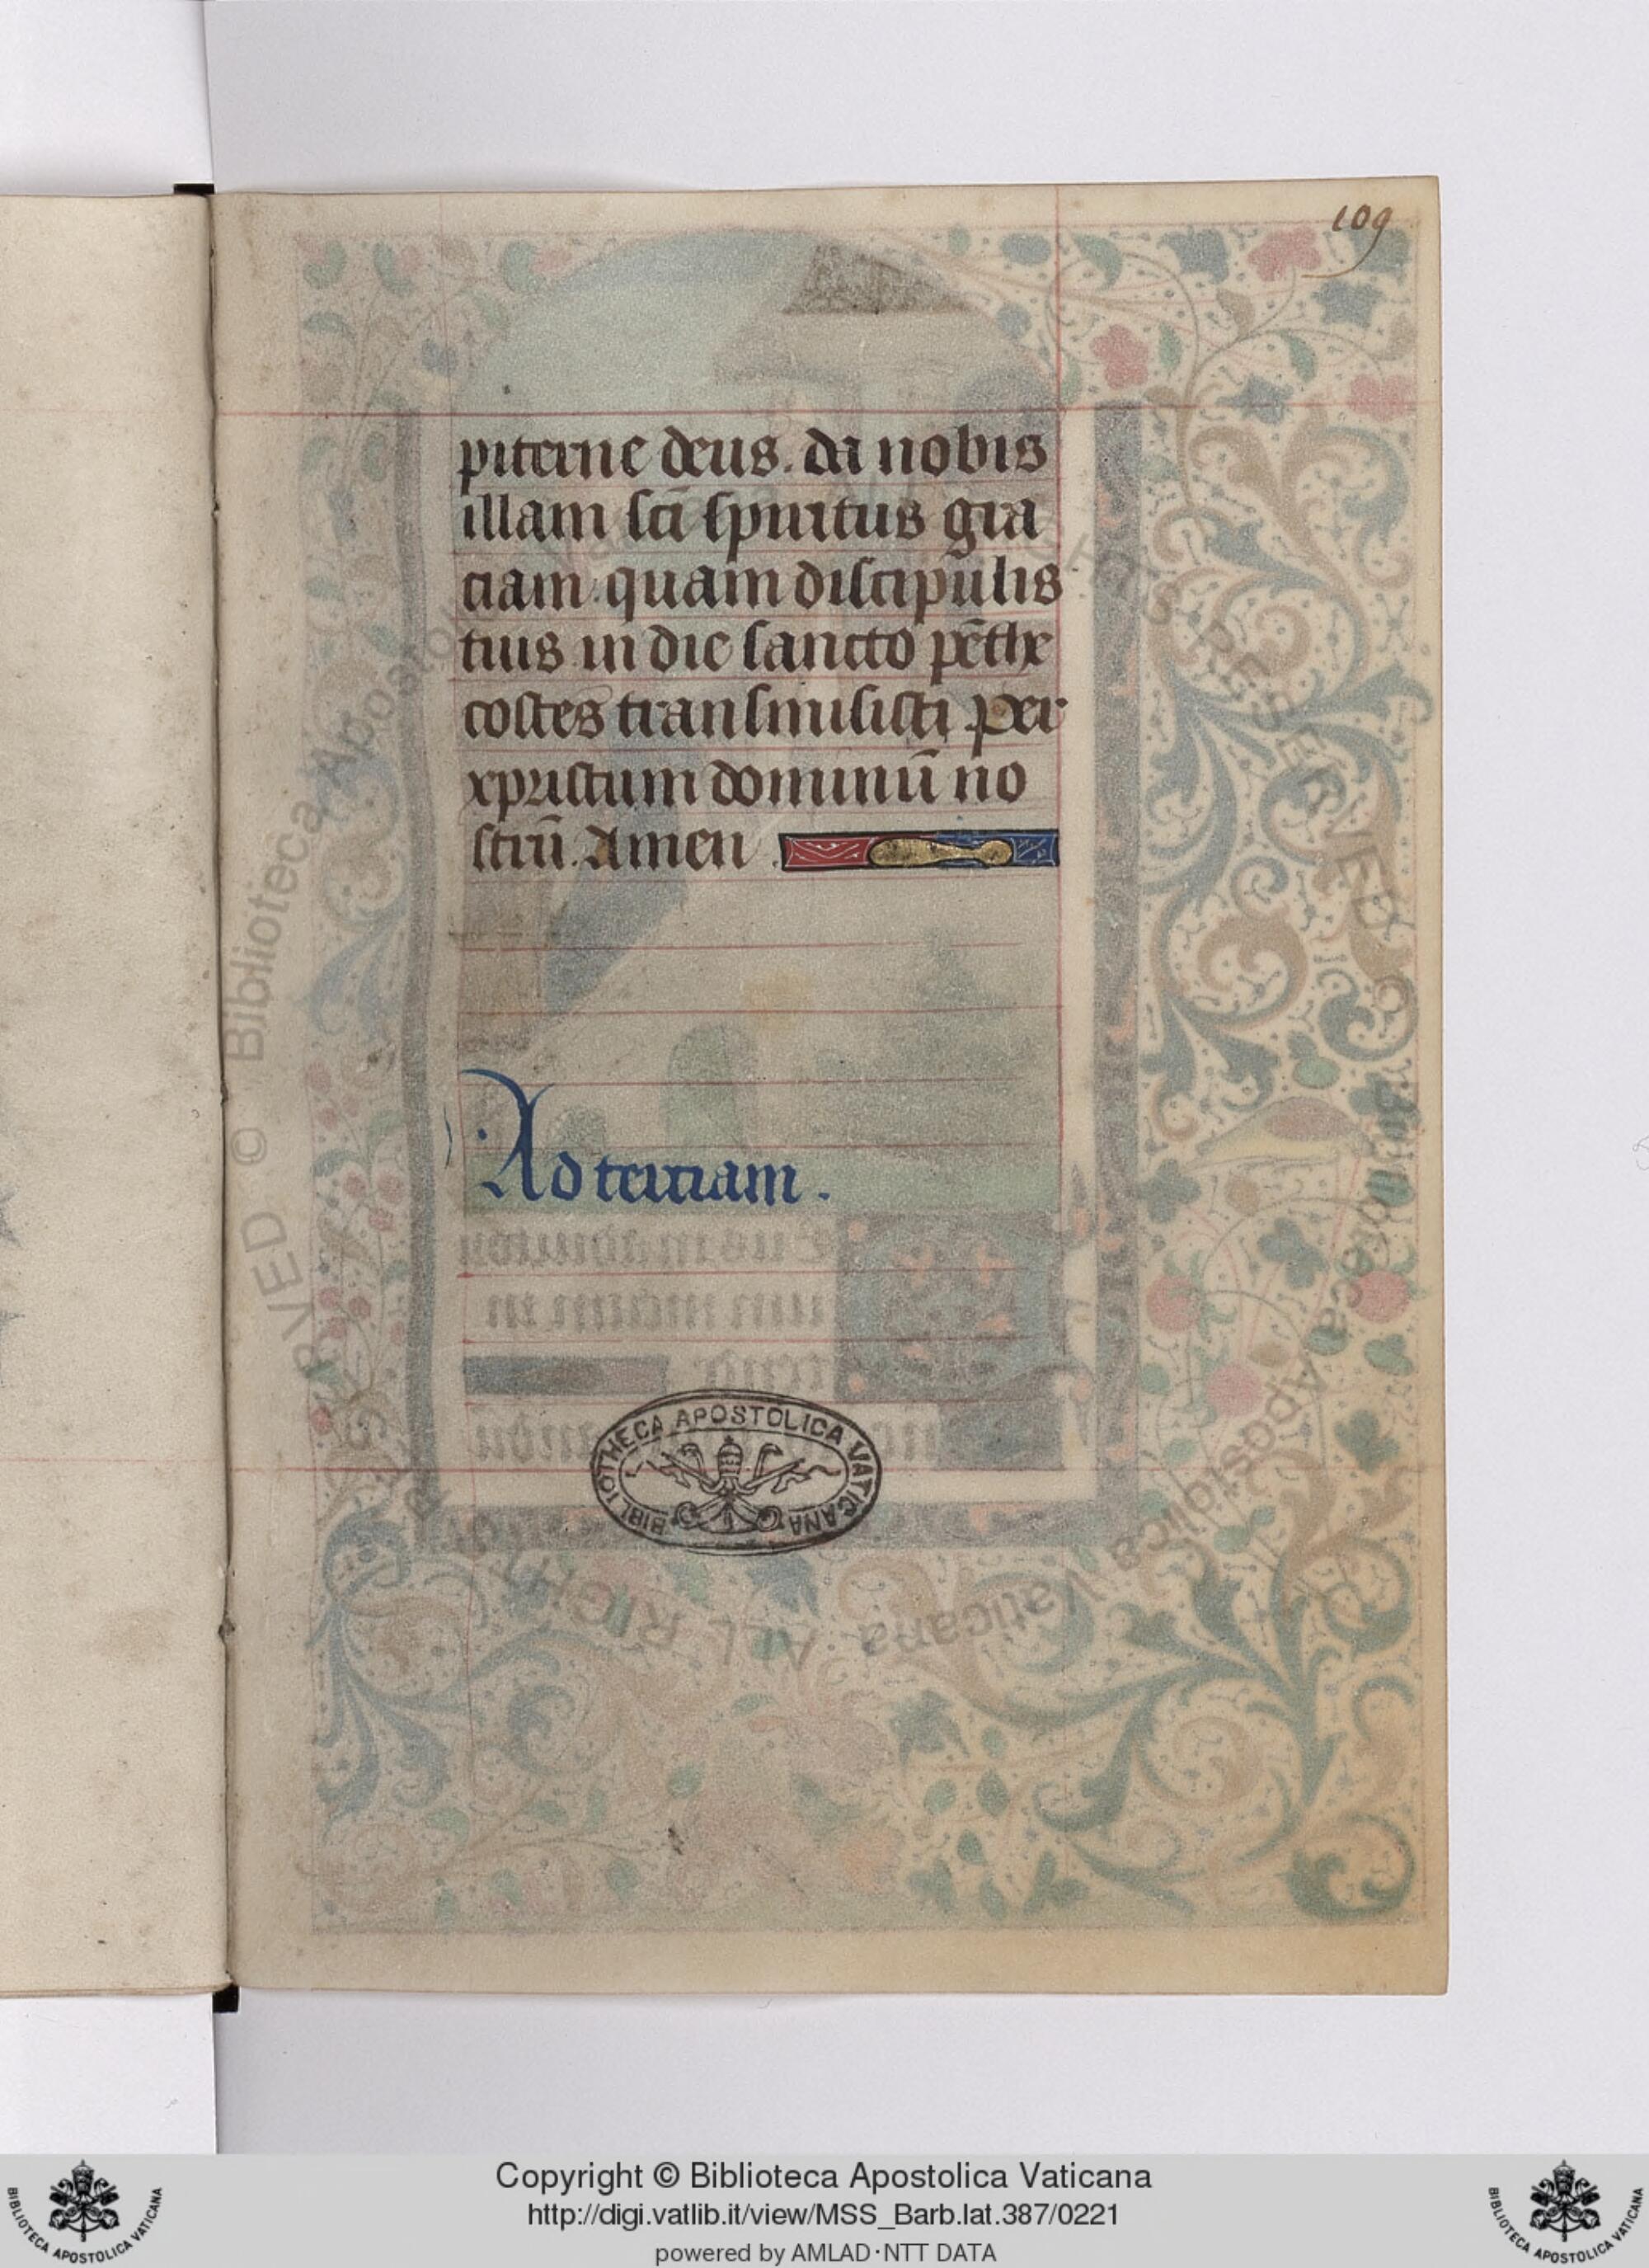 109
piterne deus. da nobis
illam sci̅ spiritus gra
ciam. quam discipulis
tuis in die sancto pe̅the
costes transmisisti per
xpristum dominu̅ no
stru̅. Amen
Ad terciam.
BIBLIOTHECA APOSTOLICA VATICANA
© Biblioteca Apostolica Vaticana ALL RIGHTS RESERVED
Copyright © Biblioteca Apostolica Vaticana
http://digi.vatlib.it/view/MSS_Barb.lat.387/0221
powered by AMLAD·NTT DATA
BIBLIOTECA APOSTOLICA VATICANA
BIBLIOTECA APOSTOLICA VATICANA